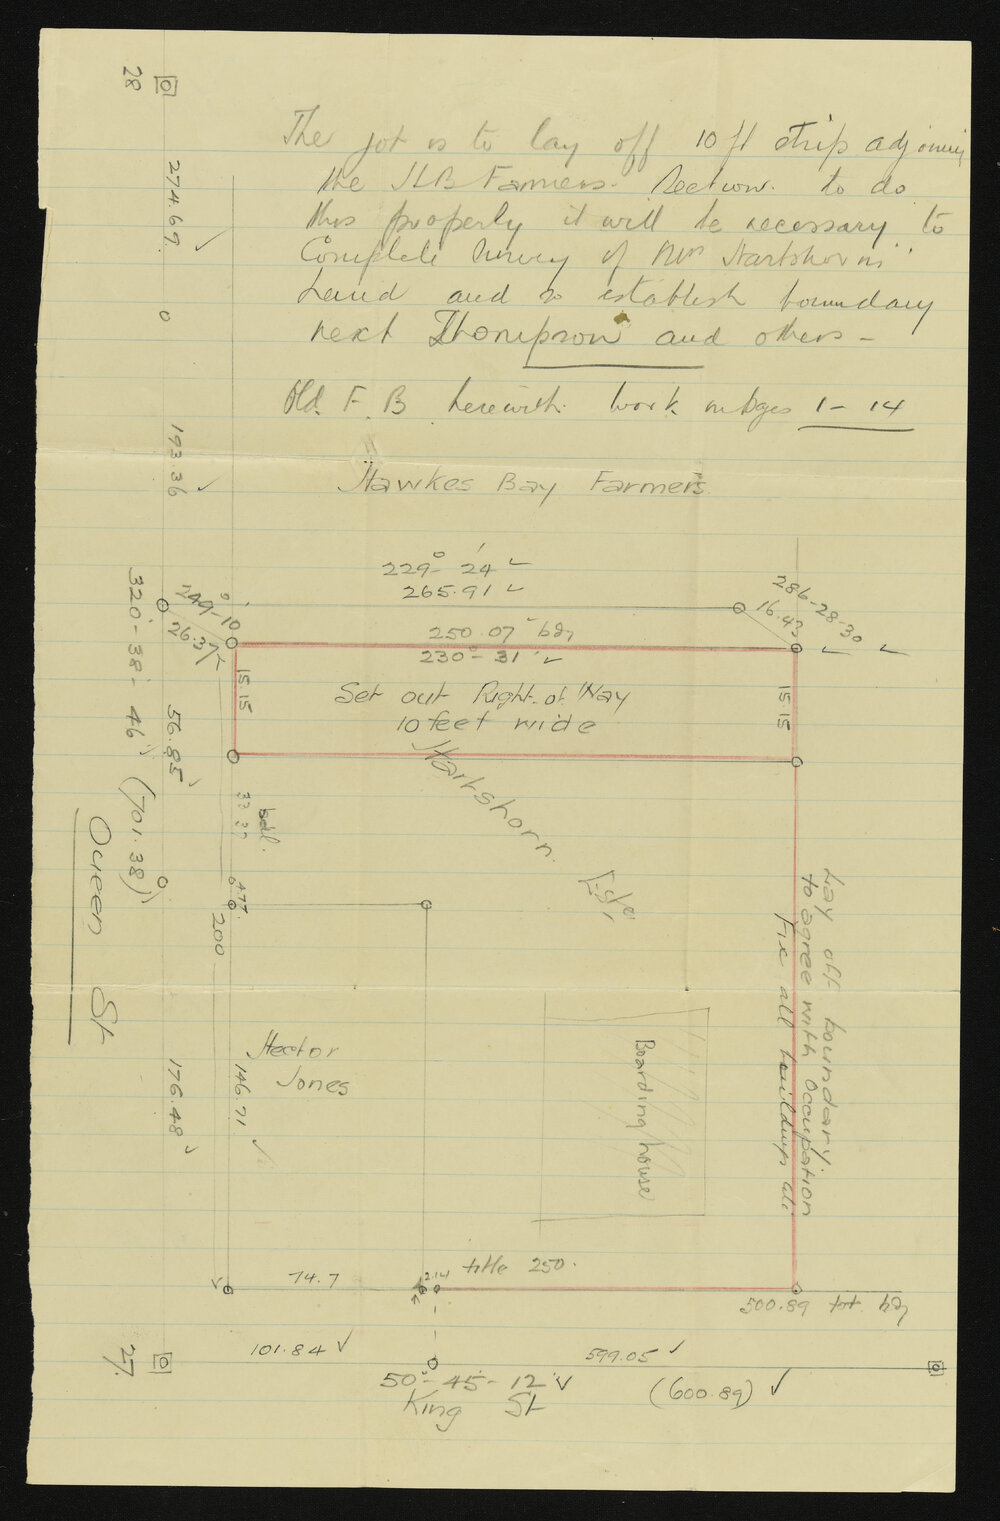 The job is to lay off 10 ft strip adjoining
the H B Farmers. Section. to do
this properly it will be necessary to
Complete Survey of Mrs Hartshorn's
Land and so establish boundary
next Thompson and others -
Old. F. B herewith work on pges 1 - 14
Hawkes Bay Farmers
28
274.69
0
193.36
320°-38'-46" (701.38)
56.85
176.48
Queen St
27
229° 24'
265.91
286-28-30
16.43
149-10
26.37
250.07 bdy
230°-31'
15.15
15.15
Set out Right of Way
10 feet wide
Hartshorn
33.37
bal.
4.77
200
146.71
Hector
Jones
Boarding house
Lay off boundary
to agree with Occupation
Fix all buildings
title 250.
74.7
2.14
500.89 tot. bdy
101.84
599.05
50°-45-12
(600.89)
King St